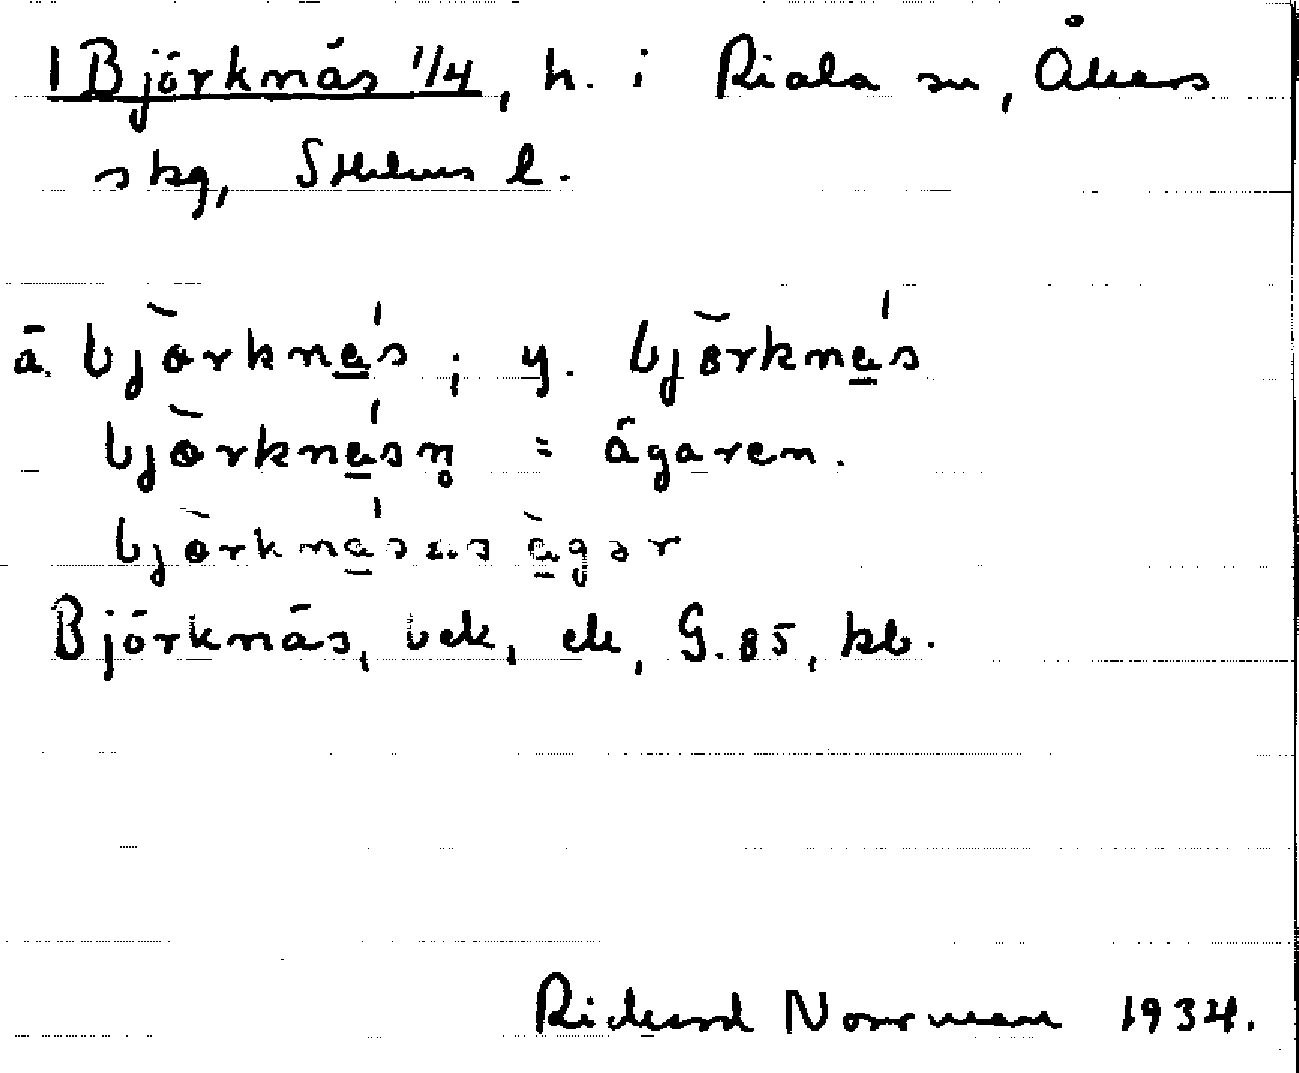 1 Björknäs 1/4, h. i Riala sn, Åkers
skg, Sthlms l.
ä. bjòrkná̱s ; y. bjòrkná̱s
bjòrkná̱sn̥ = ägaren.
bjòrkná̱sas à̱gar
Björknäs, bek, ek, G. 85, kb.
Rickard Norrman 1934.